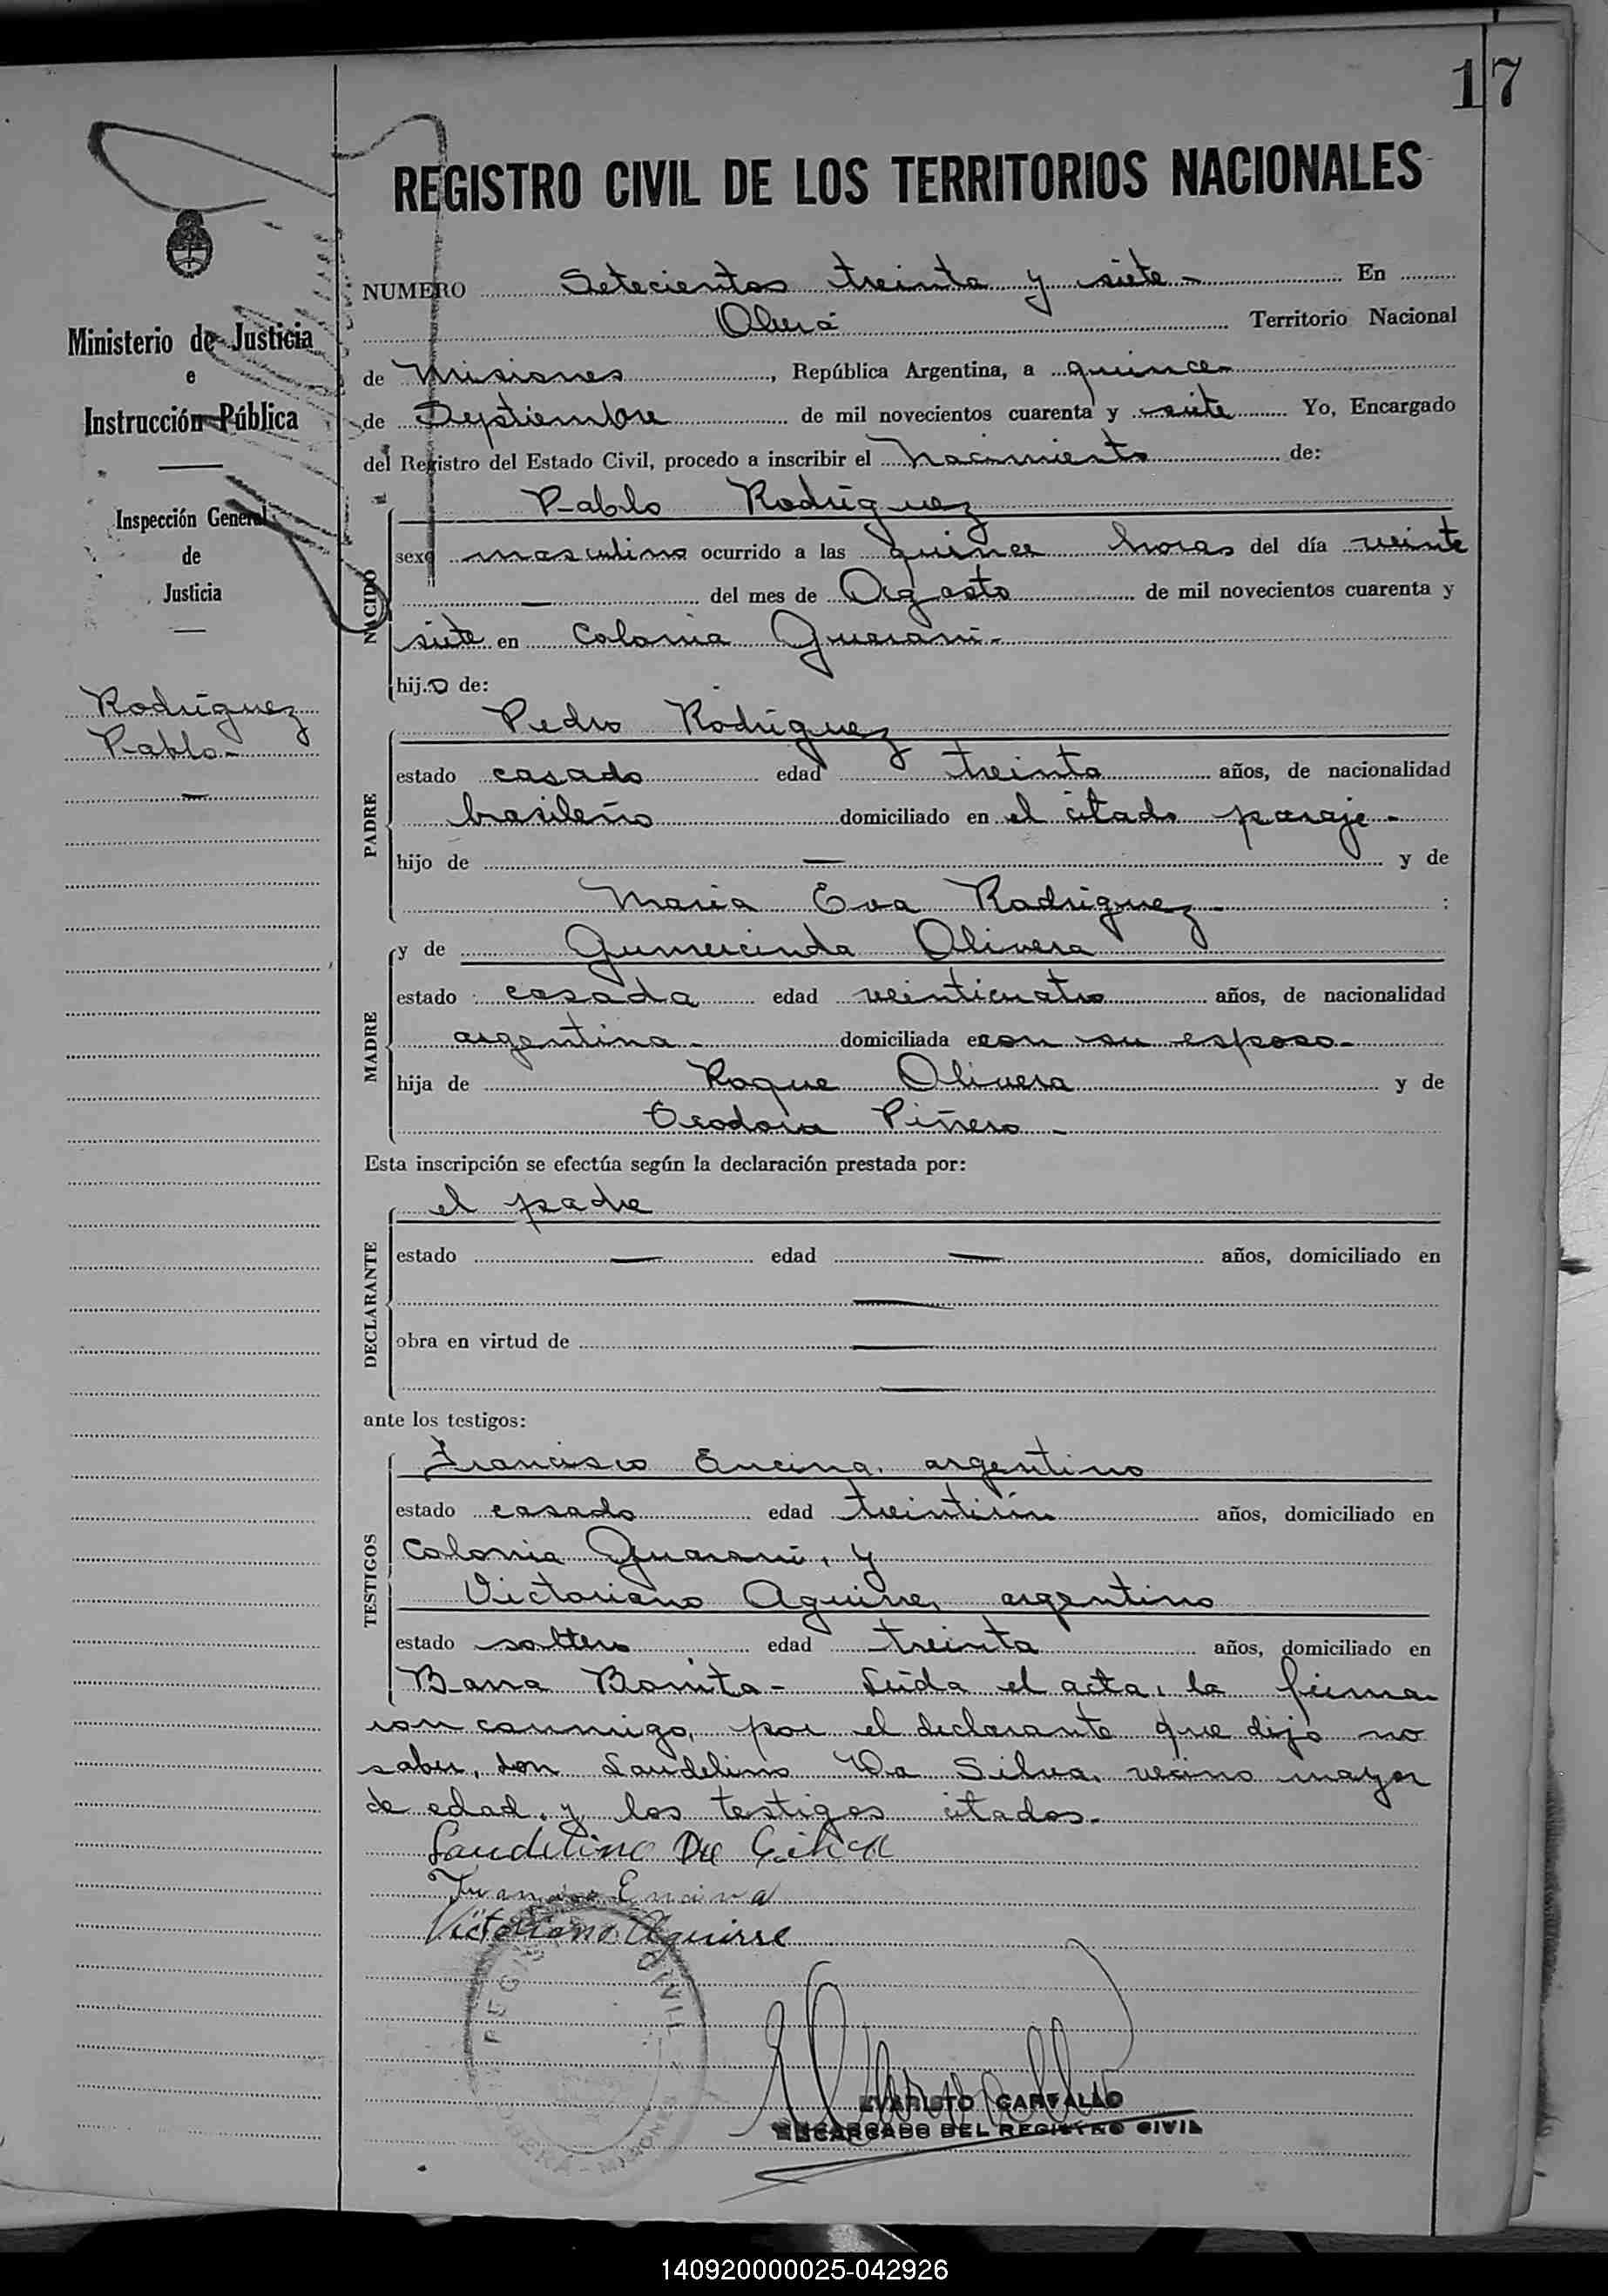 17
REGISTRO CIVIL DE LOS TERRITORIOS NACIONALES
Ministerio de Justicia
e
Instrucción Pública
Inspección General
de
Justicia
Rodríguez
Pablo-
NUMERO Setecientos treinta y siete- En
Oberá Territorio Nacional
de Misiones, República Argentina, a quince
de Septiembre de mil novecientos cuarenta y siete Yo, Encargado
del Registro del Estado Civil, procedo a inscribir el Nacimiento de:
NACIDO
Pablo Rodríguez
sexo masculino ocurrido a las quince horas del día veinte
— del mes de Agosto de mil novecientos cuarenta y
siete en Colonia Guaraní-
hijo de:
PADRE
Pedro Rodríguez
estado casado edad treinta años, de nacionalidad
brasileño domiciliado en el citado paraje-
hijo de — y de
María Eva Rodríguez- :
MADRE
y de Gumercinda Olivera
estado casada edad veinticuatro años, de nacionalidad
argentina- domiciliada e con su esposo-
hija de Roque Olivera y de
Teodora Piñero-
Esta inscripción se efectúa según la declaración prestada por:
DECLARANTE
el padre
estado — edad — años, domiciliado en
—
obra en virtud de —
—
ante los testigos:
TESTIGOS
Francisco Encina, argentino
estado casado edad treintiún años, domiciliado en
Colonia Guaraní, y
Victoriano Aguirre, argentino
estado soltero edad treinta años, domiciliado en
Barra Bonita- Leída el acta, la firma-
ron conmigo, por el declarante que dijo no
saber, don Laudelino Da Silva, vecino mayor
de edad, y los testigos citados-
Laudelino Da Silva
Francisco Encina
Victoriano Aguirre
REGISTRO CIVIL
OBERA - MISIONES
EVARISTO CARVALLO
ENCARGADO DEL REGISTRO CIVIL
140920000025-042926